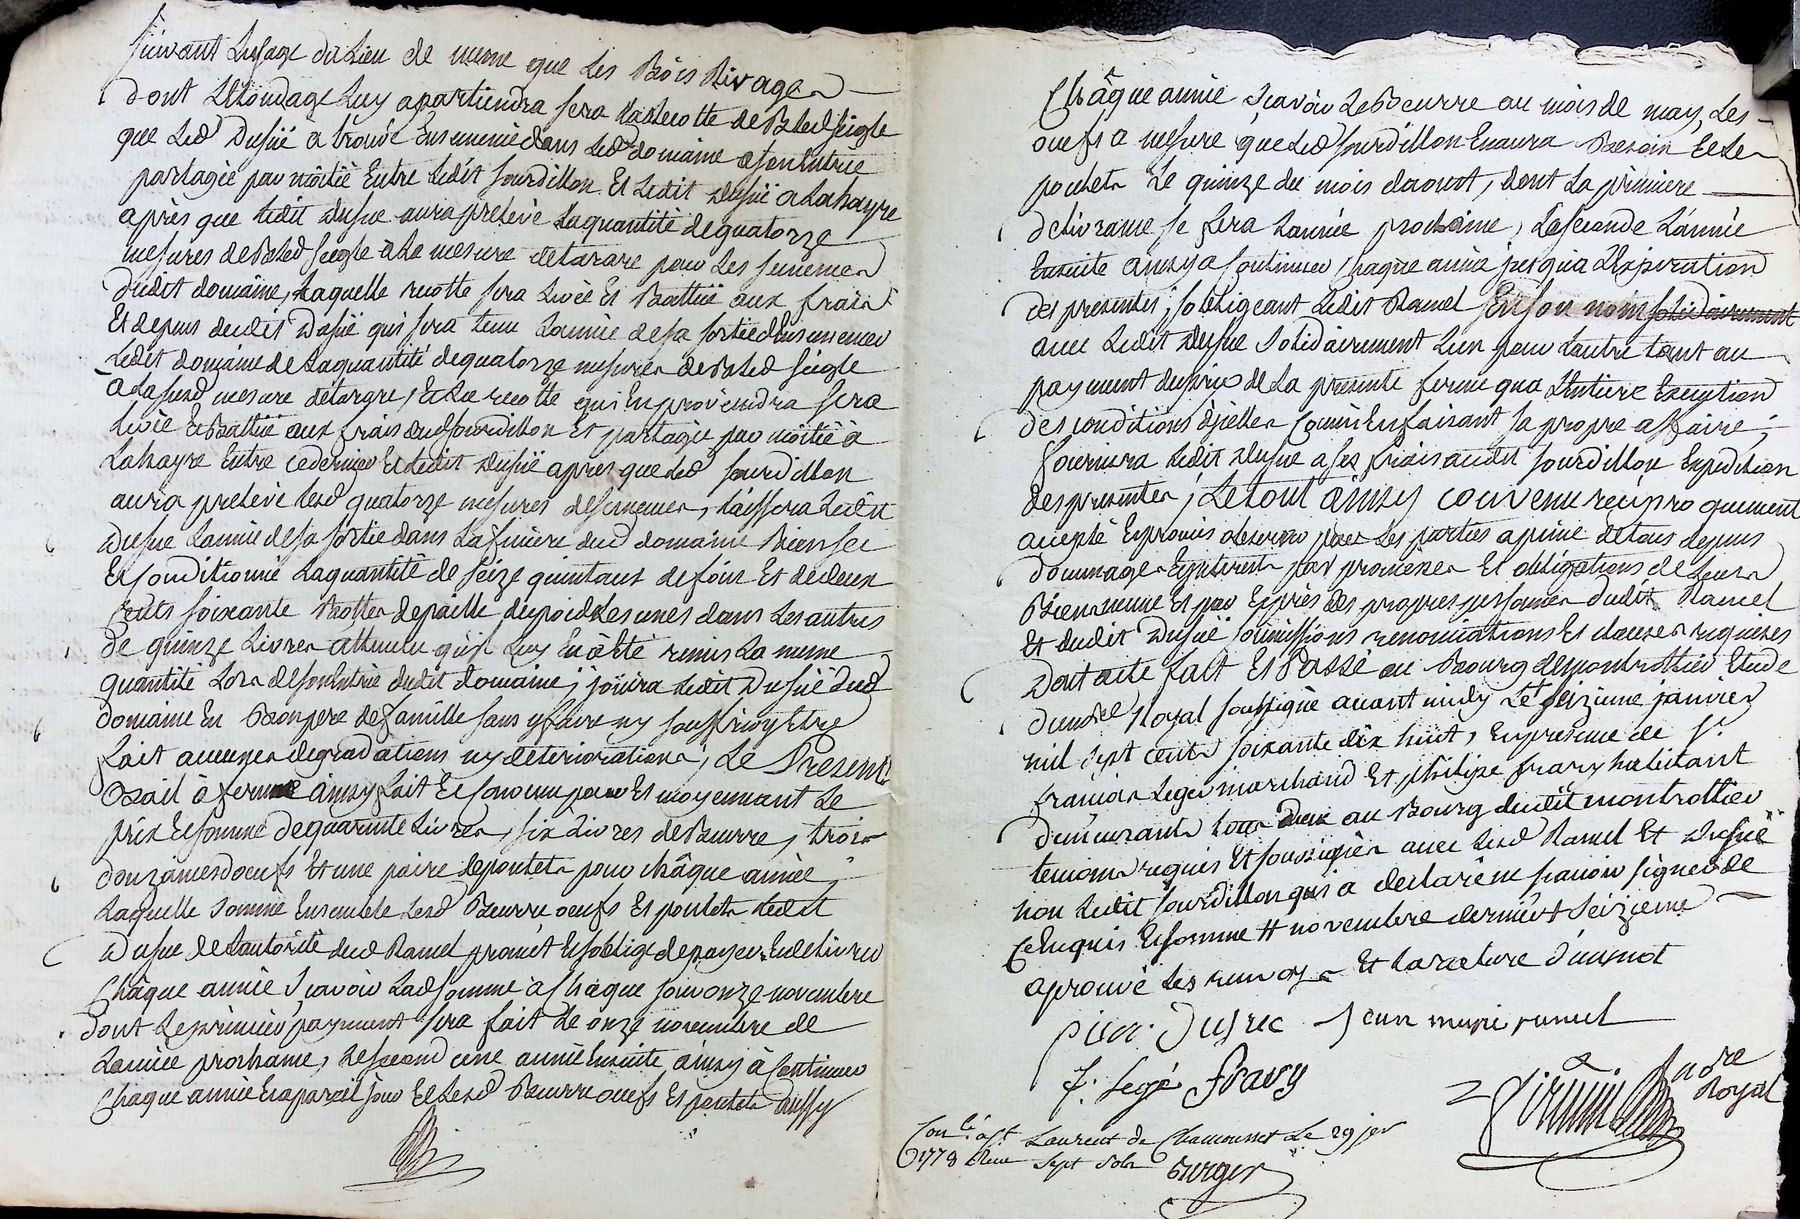 suivant Lusage du Lieu de meme que Les Bois Rivages
dont Letondage Luy apartiendra sera La Recotte de Bled seigle
que Led Dusué a trouvé Ensemencé dans Led domaine a son Entrée
partagée par moitié Entre Ledit Sourdillon Et Ledit Dusué a Lahayre
après que Ledit Dusué aura prelevé La quantité de quatorze
mesures de Bled seigle a la mesure de tarare pour Les semences
dudit domaine, Laquelle recotte sera Levée Et Battüe aux fraix
Et depens dudit Dusué qui sera tenu Lannée de sa sortie d'Ensemencer
Ledit domaine de La quantité de quatorze mesures de Bled seigle
a La susd mesure de tarare, Et La recotte qui En proviendra sera
levée Et Battüe aux frais dud Sourdillon Et partagée par moitié à
Lahayre Entre ce dernier Et Ledit Dusué après que Led Sourdillon
aura prelevé Lesd quatorze mesures de semences, Laissera Ledit
Dusué Lannée de sa sortie dans La feniere dud domaine Bien sec
Et Conditionné La quantité de seize quintaux de foin Et de deux
cents soixante Bottes de paille du poid Les unes dans Les autres
de quinze Livres attendu qu'il Luy En a été remis La meme
quantité Lors de son Entrée dudit domaine; joüira Ledit Dusué dud
domaine En Bon pere de famille sans y faire ny souffrir y Etre
fait aucunes degradations ny deteriorations, Le Present
Bail à ferme ainsy fait Et Convenu pour Et moyennant Le
prix Et somme de quarante Livres, six Livres de Beurre, trois
douzaines d'oeufs Et une paire de poulets pour châque année,
Laquelle somme Ensemble Lesd Beurre oeufs Et poulets Ledit
Dusué de Lautorité dud Ramel promet Et s'oblige de payer Et delivrer
Châque année Scavoir Lad somme à châque jour onze novembre
dont Le premier payement sera fait Le onze novembre de
Lannée prochaine, Le second une année Ensuite ainsy à Continuer
Chaque année Et à pareil jour Et Lesd Beurre oeufs Et poulets aussy
Châque année Scavoir Le Beurre au mois de may, Les
oeufs a mesure que Led Sourdillon En aura Besoin Et Les
poulets Le quinze du mois daoust, dont La premiere
delivrance se fera Lannée prochaine, La seconde Lannée
Ensuite ainsy a Continuer Chaque année jusqu'a L'Expiration
des presentes, s'obligeant Ledit Ramel En son nom solidairement
avec Ledit Dusué solidairement Lun pour Lautre tant au
payement du prix de La presente ferme qua L'Entiere Execution
des conditions d'jcelle Comme En faisant sa propre affaire;
fournira Ledit Dusué a ses frais audit Sourdillon Expedition
des presentes, Le tout ainsy convenu reciproquement
accepté Et promis observer par Les parties a peine de tous depens
dommages Et interests par promesses Et obligations de Leurs
Biens meme Et par Exprès des propres personnes dudit Ramel
Et dudit Dusué soumissions renonciations Et clauses requises
Dont acte fait Et Passé au Bourg de montrottier Etude
du no.re Royal soussigné avant midy Le seizieme janvier
mil sept cents soixante dix huit, En presence de S.r
francois Leger marchand Et philipe fravy habitant
demeurants tous Deux au Bourg dudit montrottier
temoins requis Et soussignés avec Lesd Ramel Et Dusué
non Ledit Sourdillon qui a declaré ne scavoir signer de
Ce Enquis Et somme # novembre dernier + seizieme
aprouvé Les renvoys Et La rature d'un mot
pier. Dusuc Jean marie ramel
f. Legé fravy
no.re
Royal
Con.lé à S.t Laurent de Chamousset Le 29 j.er
1778 Reçu sept sols